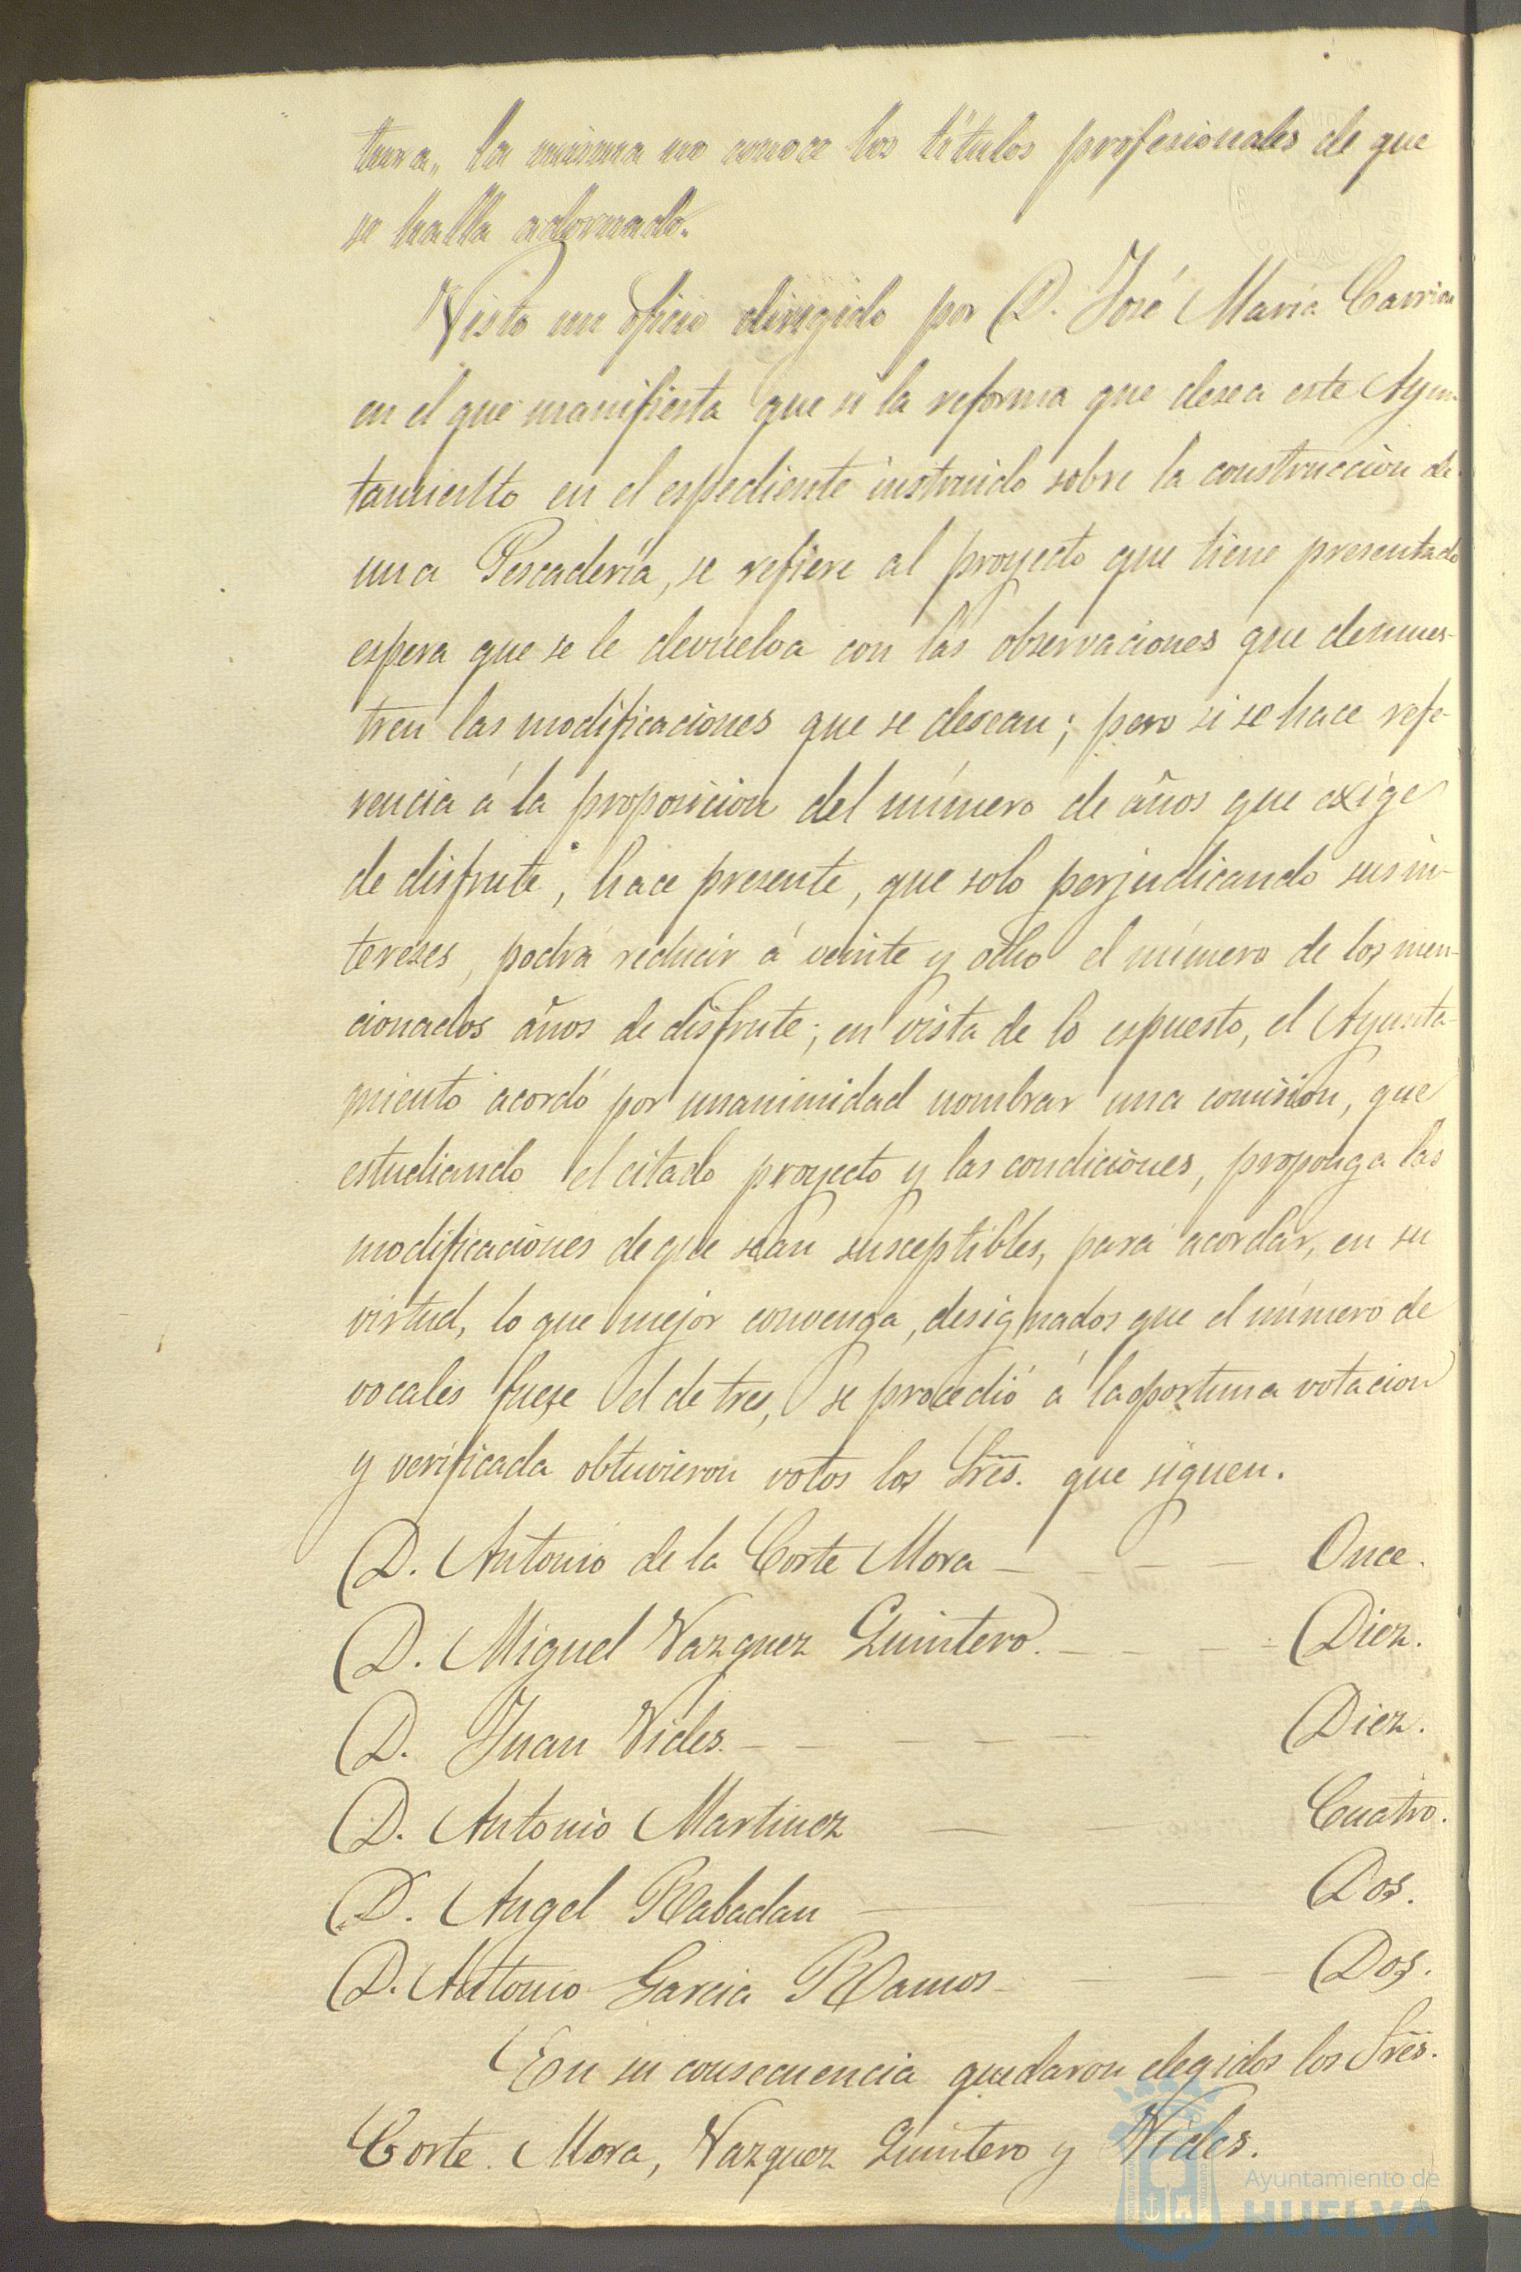 tura, la misma no conoce los títulos profesionales de que
se halla adornado.
Visto un oficio dirigido por D. José María Carrion
en el que manifiesta que si la reforma que desea este Ayun-
tamiento en el espediente instruido sobre la construccion de
una Pescadería, se refiere al proyecto que tiene presentado
espera que se le devuelva con las observaciones que demues-
tren las modificaciones que se desean; pero si se hace refe-
rencia á la proposicion del número de años que exige
de disfrute, hace presente, que solo perjudicando sus in-
tereses, podrá reducir á veinte y ocho el número de los men-
cionados años de disfrute; en vista de lo espuesto, el Ayunta-
miento acordó por unanimidad nombrar una comision, que
estudiando el citado proyecto y las condiciones, proponga las
modificaciones de que sean susceptibles, para acordar, en su
virtud, lo que mejor convenga, designados que el número de
vocales fuese el de tres, se procedió á la oportuna votacion
y verificada obtuvieron votos los Sres. que siguen.
D. Antonio de la Corte Mora - - - - Once.
D. Miguel Vazquez Quintero. - - - - Diez.
D. Juan Vides. - - - - - Diez.
D. Antonio Martinez - - Cuatro.
D. Angel Rabadan - - Dos.
D. Antonio Garcia Ramos - - - Dos.
En su consecuencia quedaron elegidos los Sres.
Corte Mora, Vazquez Quintero y Vides.
Ayuntamiento de
HUELVA